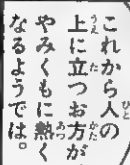 これから人の
上に立つお方が
やみくもに熱く
なるようでは。